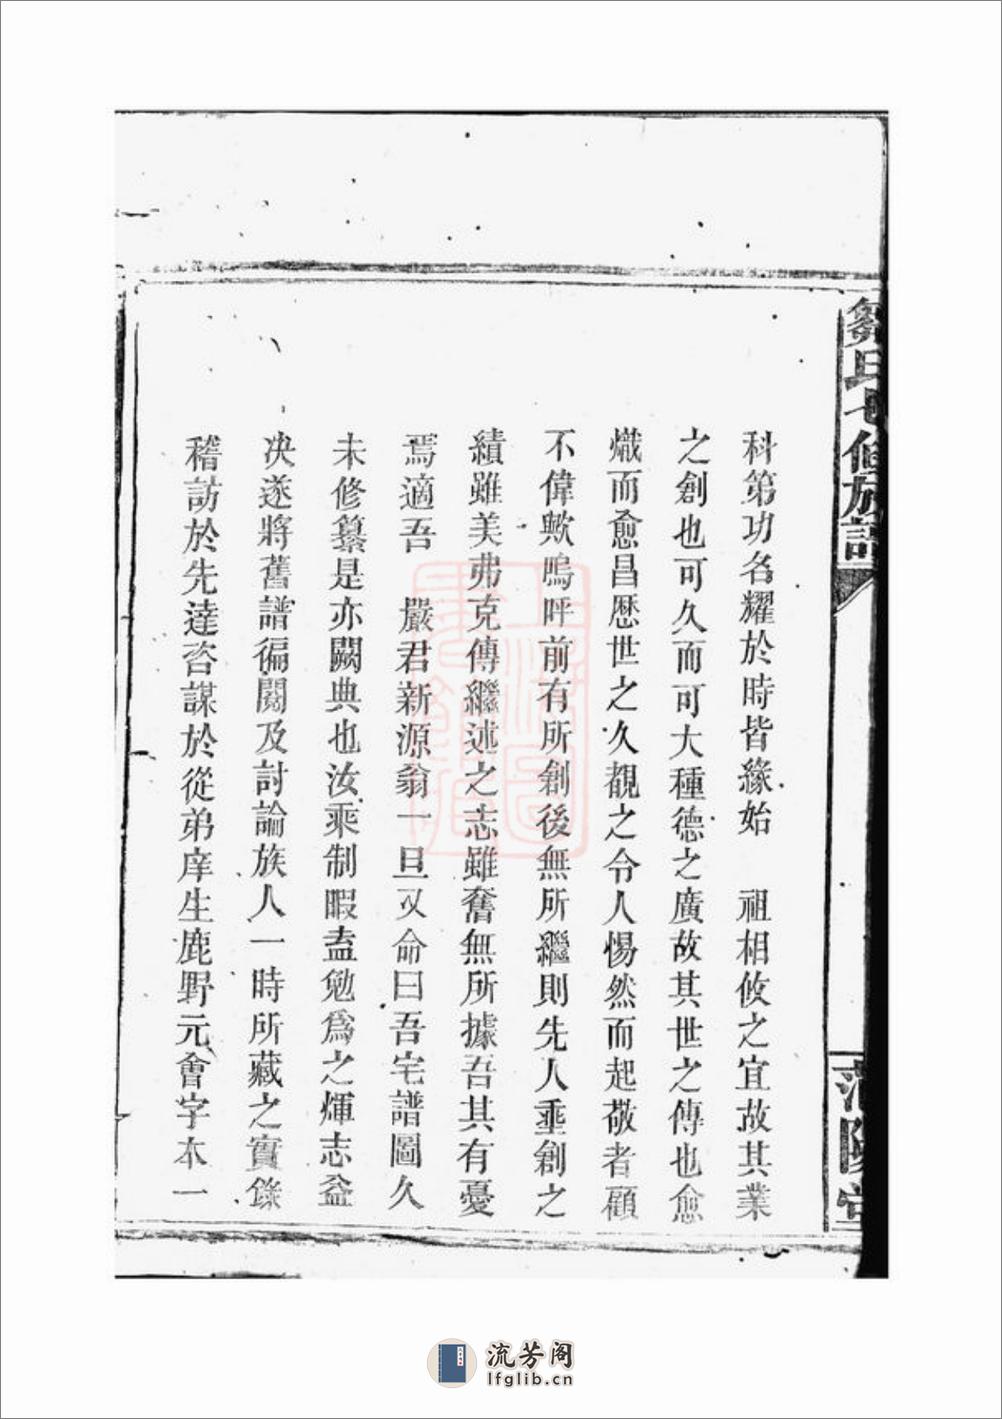 鄒氏七修族譜
范陽堂
科第功名耀於時皆緣始　祖相攸之宜故其業
之創也可久而可大種德之廣故其世之傳也愈
熾而愈昌歷世之久覩之令人惕然而起敬者顧
不偉歟嗚呼前有所創後無所繼則先人埀創之
績雖美弗克傳繼述之志雖奮無所據吾其有憂
焉適吾　嚴君新源翁一旦又命曰吾宅譜圖久
未修纂是亦闕典也汝乘制暇盍勉爲之煇志益
决遂將舊譜徧閱及討論族人一時所藏之實錄
稽訪於先達咨謀於從弟庠生鹿野元會字本一
流芳阁
lfglib.cn